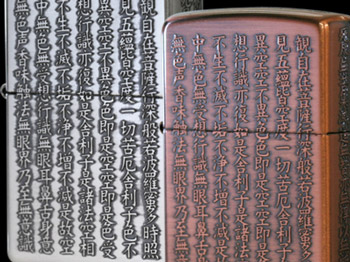 観自在菩薩行深般若波羅蜜多時照
見五蘊皆空度一切苦厄舎利子色不
異空空不異色色即是空空即是色受
想行識亦復如是舎利子是諸法空相
不生不滅不垢不浄不増不減是故空
中無色無受想行識無眼耳鼻舌身意
無色声香味触法無眼界乃至無意識
観自在菩薩行深般若波羅蜜多時照
見五蘊皆空度一切苦厄舎利子色不
異空空不異色色即是空空即是色受
想行識亦復如是舎利子是諸法空相
不生不滅不垢不浄不増不減是故空
中無色無受想行識無眼耳鼻舌身意
無色声香味触法無眼界乃至無意識